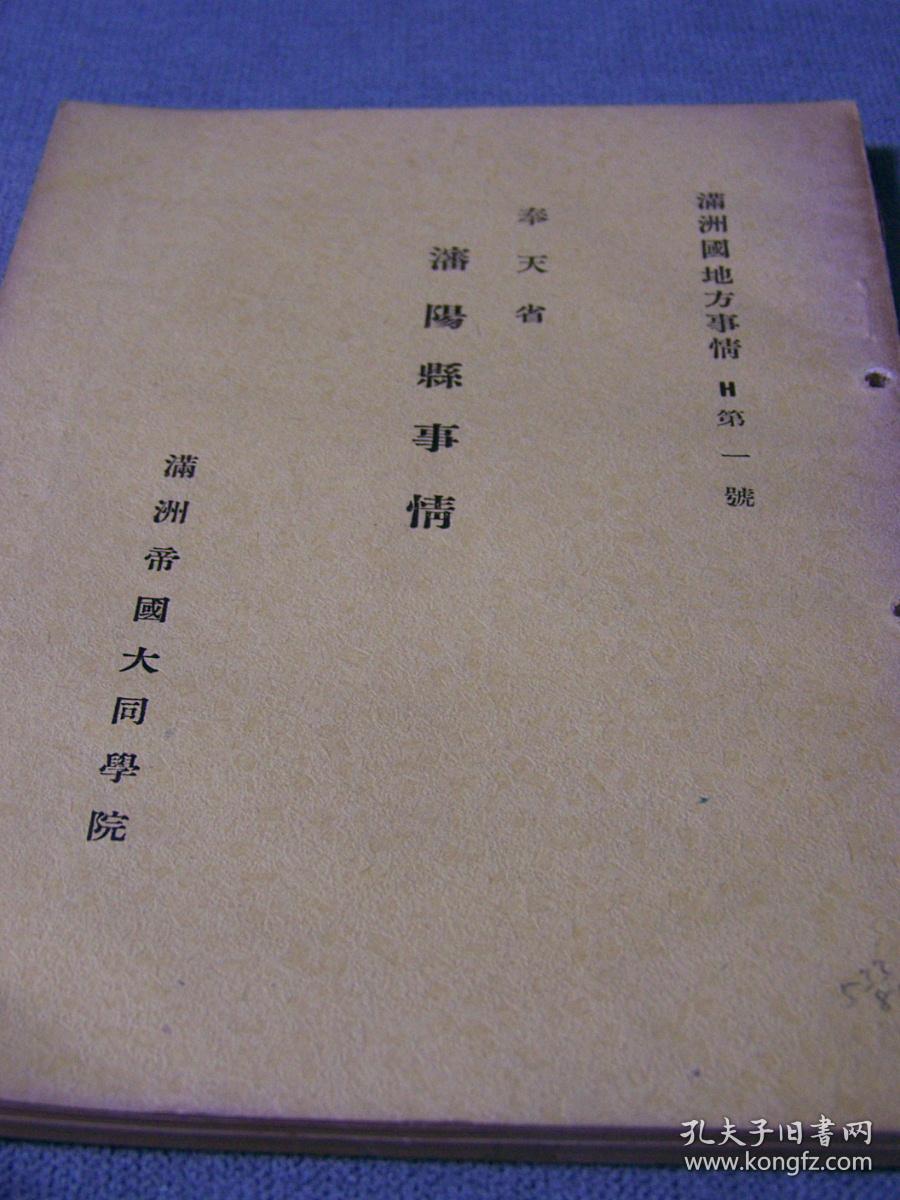 滿洲國地方事情 H 第一號
奉天省
瀋陽縣事情
滿洲帝國大同學院
孔夫子旧书网
www.kongfz.com